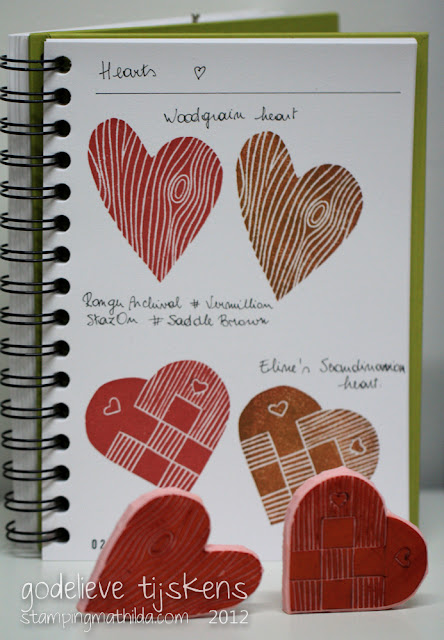 Hearts ♡
Woodgrain heart
Ranger Archival # Vermillion
StazOn # Saddle Brown
Eline's Scandinavian
heart.
02
godelieve tijskens
stampingmathilda.com 2012